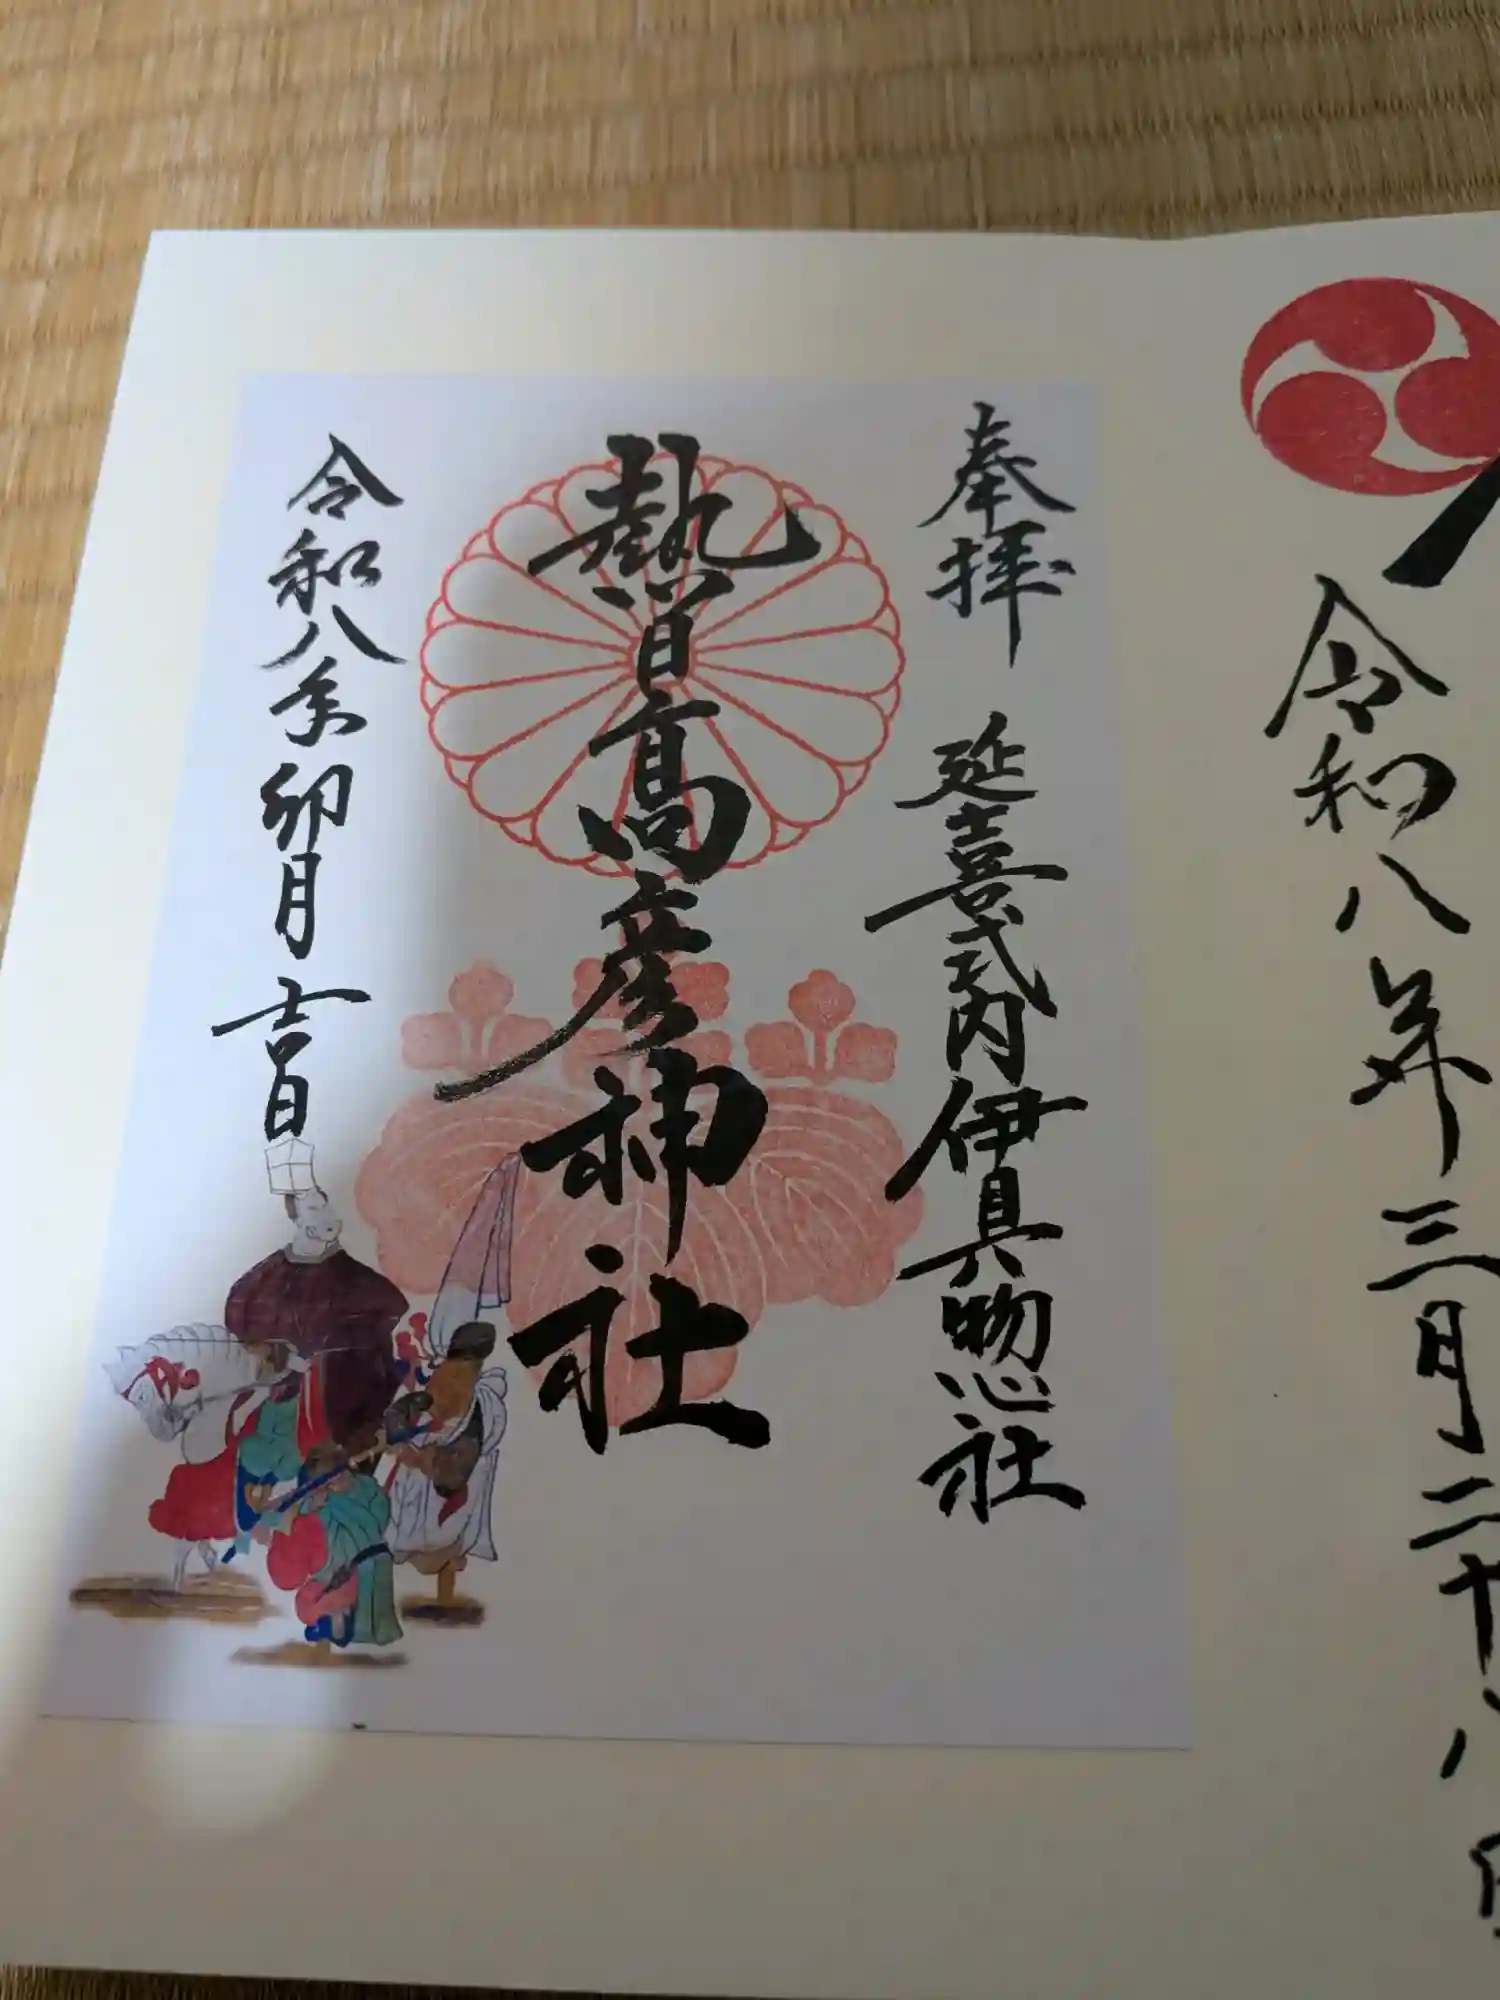 令和八年三月二十八日
奉拝 延喜式内伊具惣社
熱日高彦神社
令和八年卯月吉日